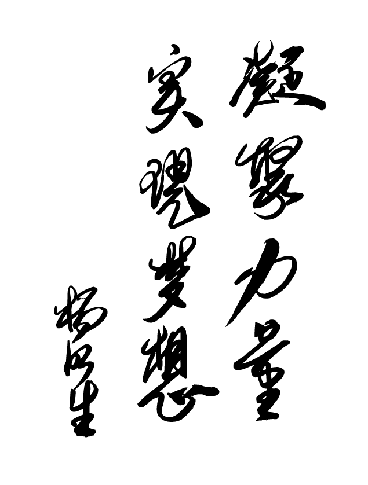 凝聚力量
实现梦想
杨汉生